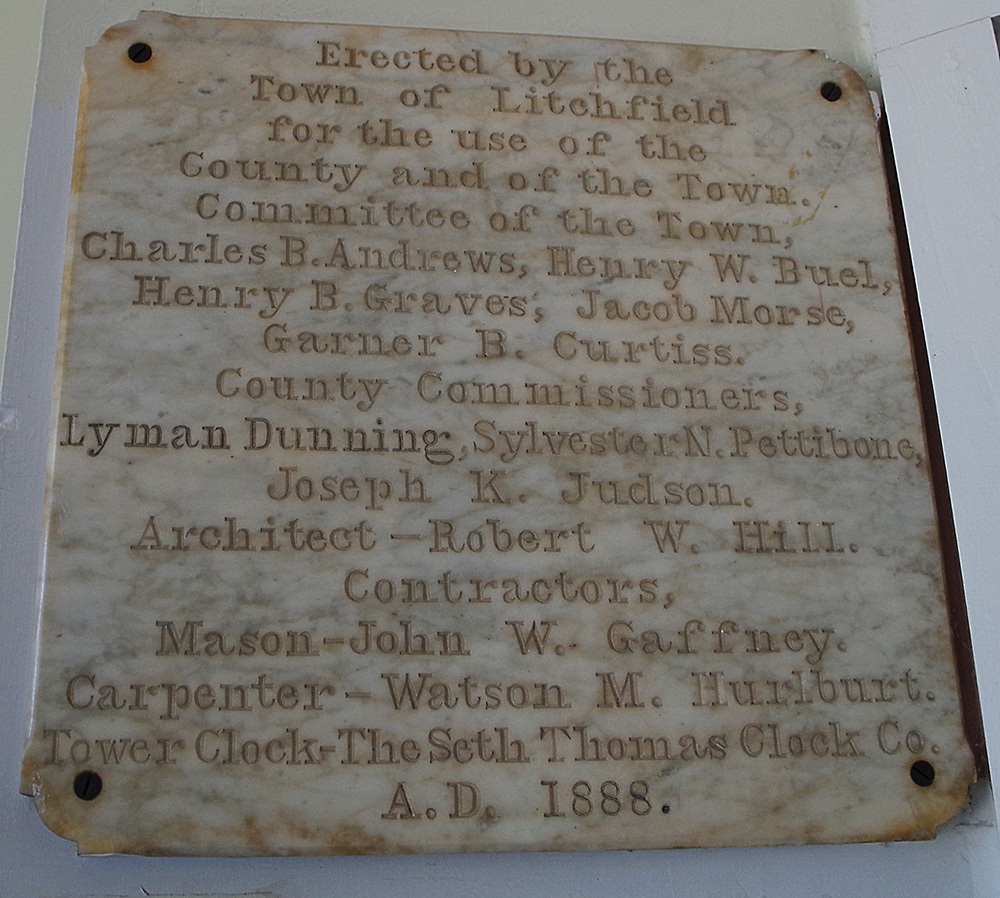 Erected by the
Town of Litchfield
for the use of the
County and of the Town.
Committee of the Town,
Charles B. Andrews, Henry W. Buel,
Henry B. Graves, Jacob Morse,
Garner B. Curtiss.
County Commissioners,
Lyman Dunning, Sylvester N. Pettibone,
Joseph K. Judson.
Architect – Robert W. Hill.
Contractors,
Mason – John W. Gaffney.
Carpenter – Watson M. Hurlburt.
Tower Clock - The Seth Thomas Clock Co.
A.D. 1888.